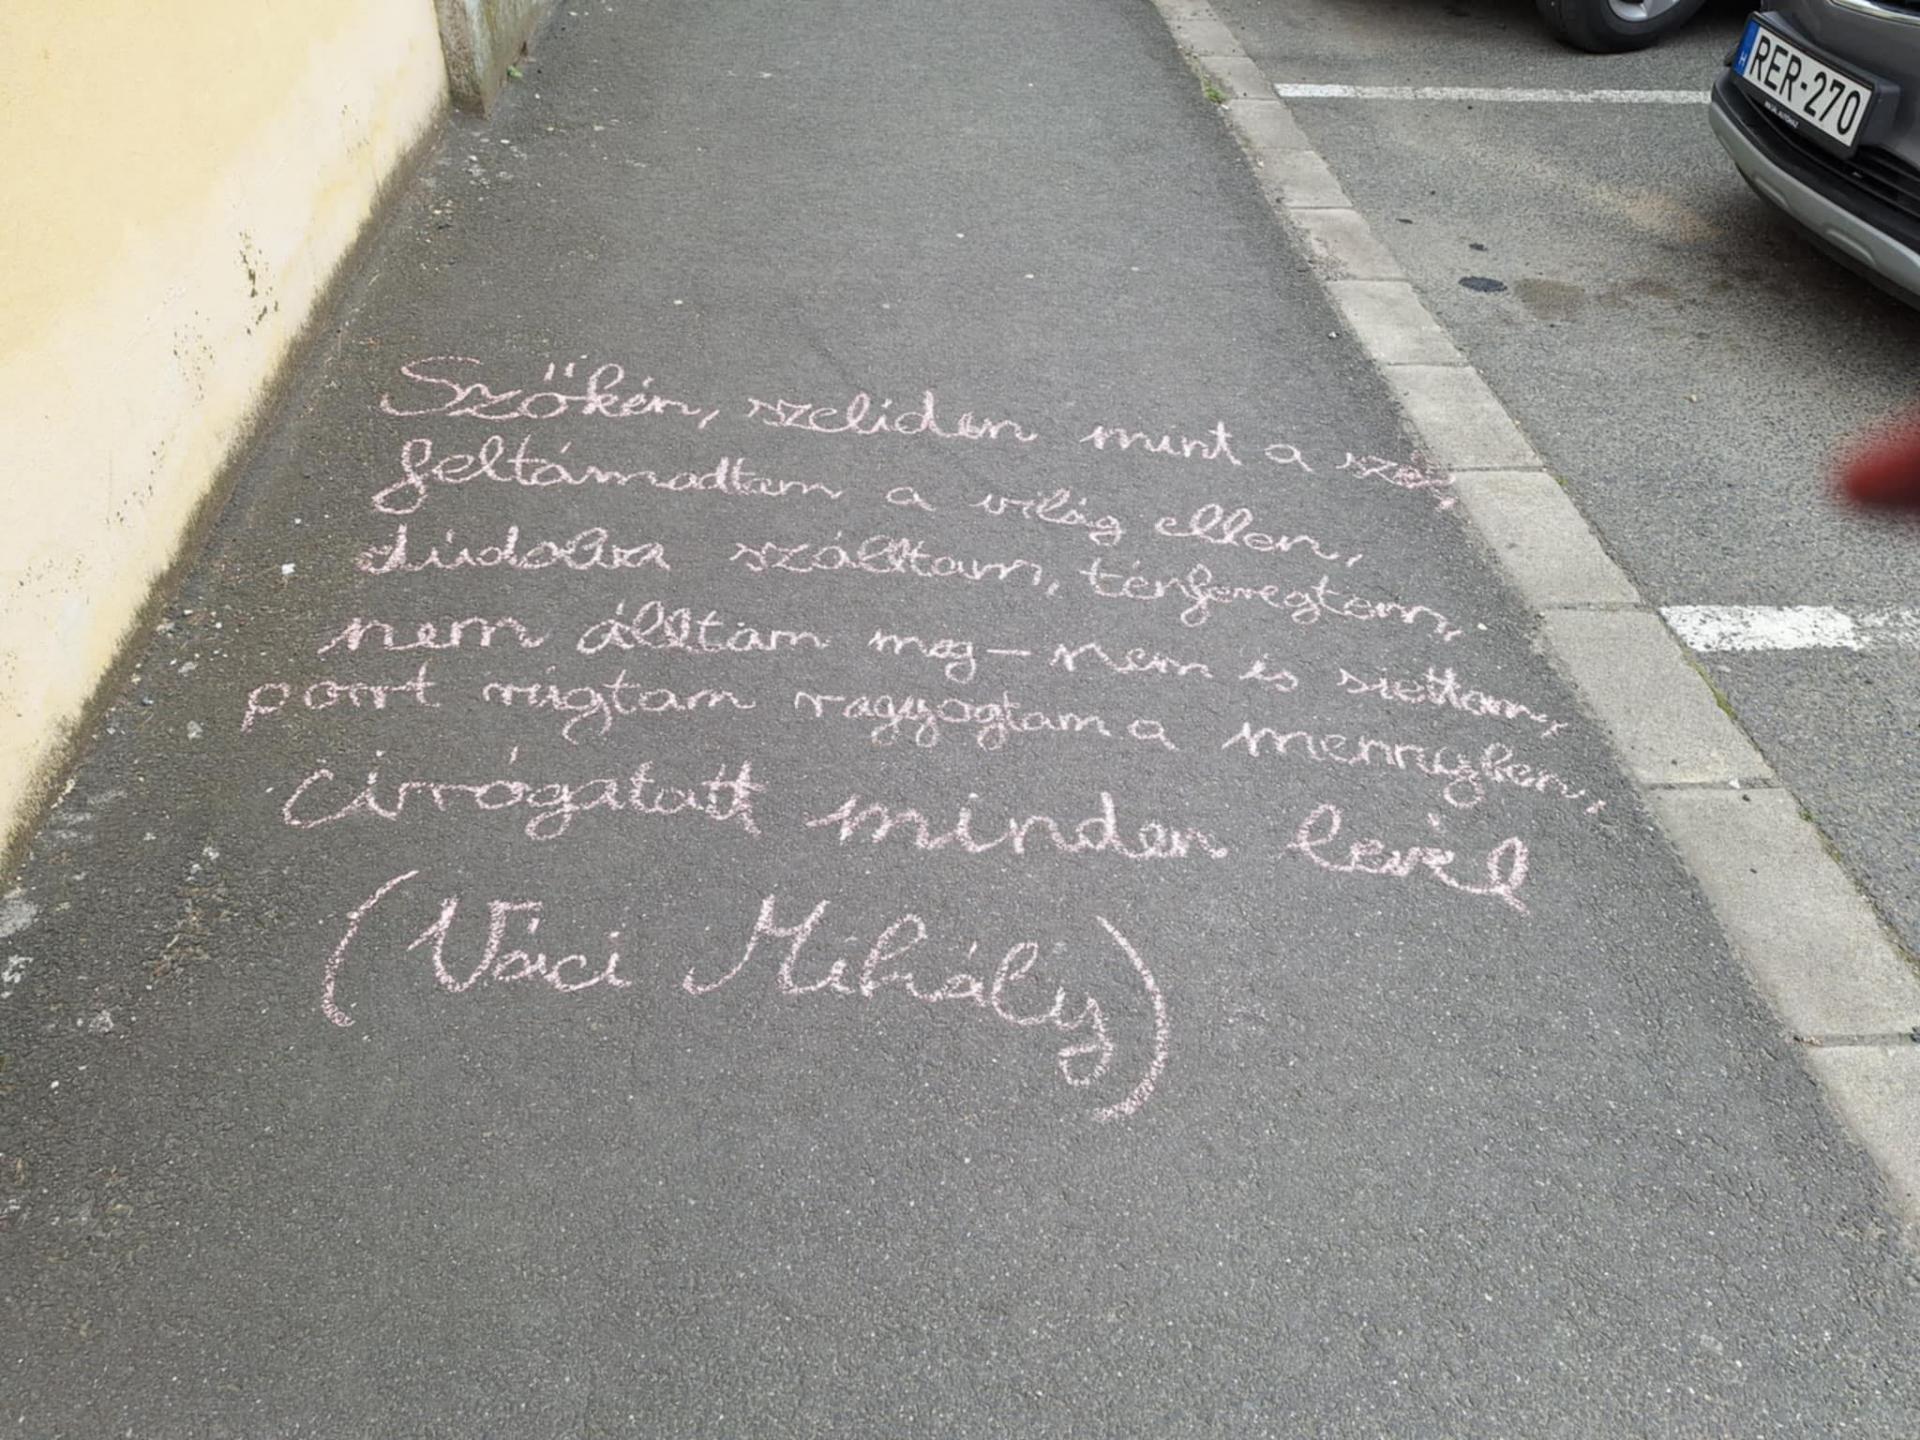 Szőkén, szeliden mint a szél,
feltámadtam a világ ellen,
dúdolva szálltam, térferegtem,
nem álltam meg – nem is siettem,
port rúgtam ragyogtam a mennyben,
cirógatott minden levél
(Váci Mihály)
H RER-270